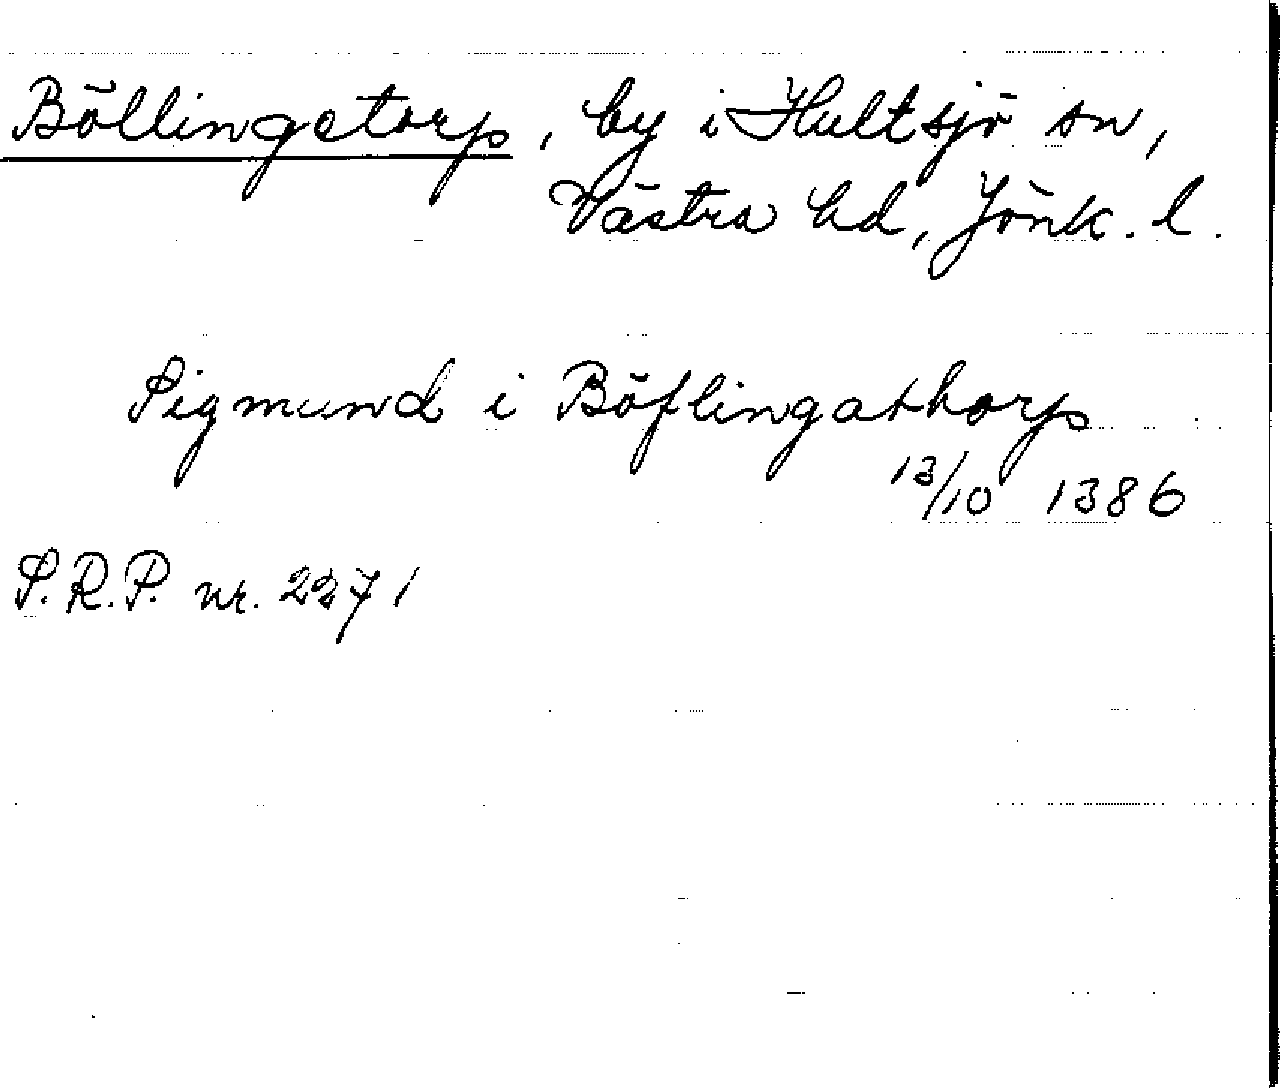 Böllingetorp, by i Hultsjö sn,
Västra hd, Jönk. l.
Sigmund i Böflingathorp
13/10 1386
S.R.P. nr. 2271